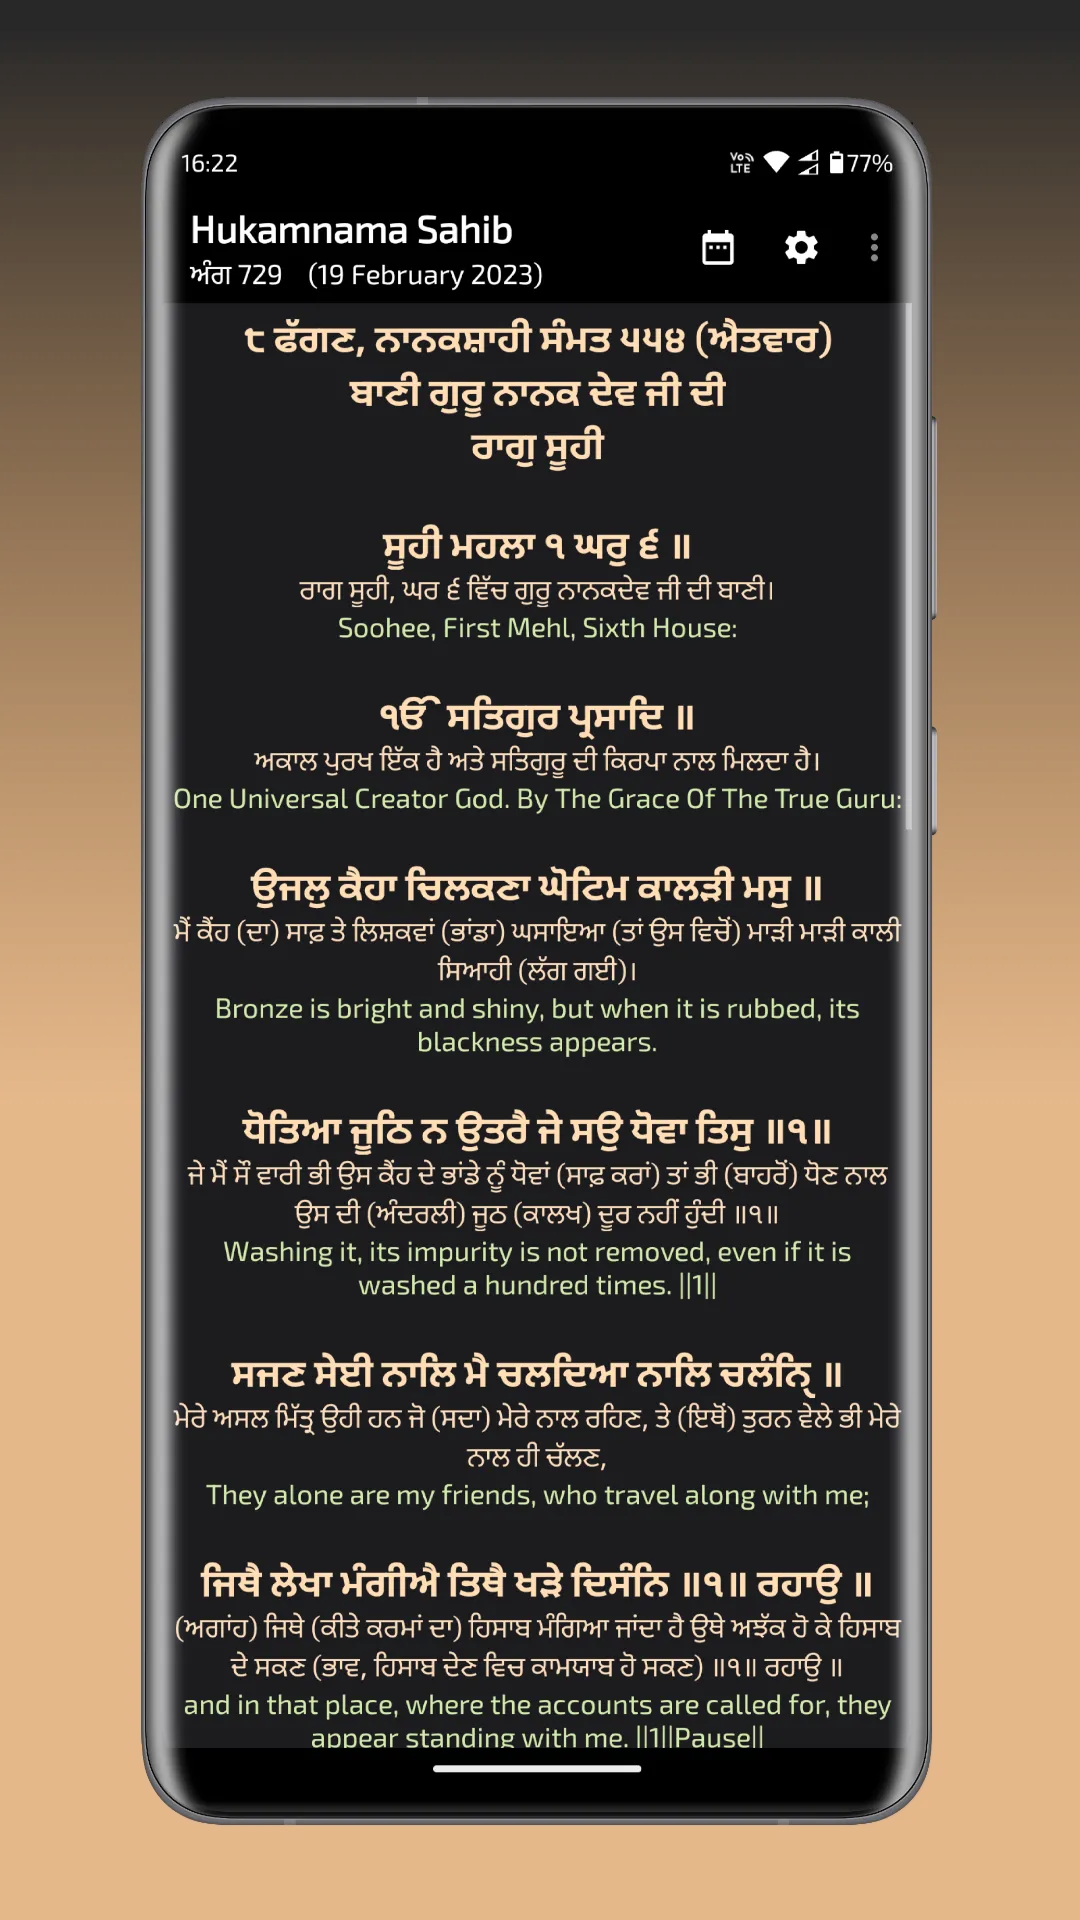 16:22
Vo LTE
77%
Hukamnama Sahib
ਅੰਗ 729 (19 February 2023)
੮ ਫੱਗਣ, ਨਾਨਕਸ਼ਾਹੀ ਸੰਮਤ ੫੫੪ (ਐਤਵਾਰ)
ਬਾਣੀ ਗੁਰੂ ਨਾਨਕ ਦੇਵ ਜੀ ਦੀ
ਰਾਗੁ ਸੂਹੀ
ਸੂਹੀ ਮਹਲਾ ੧ ਘਰੁ ੬ ॥
ਰਾਗ ਸੂਹੀ, ਘਰ ੬ ਵਿੱਚ ਗੁਰੂ ਨਾਨਕਦੇਵ ਜੀ ਦੀ ਬਾਣੀ।
Soohee, First Mehl, Sixth House:
ੴ ਸਤਿਗੁਰ ਪ੍ਰਸਾਦਿ ॥
ਅਕਾਲ ਪੁਰਖ ਇੱਕ ਹੈ ਅਤੇ ਸਤਿਗੁਰੂ ਦੀ ਕਿਰਪਾ ਨਾਲ ਮਿਲਦਾ ਹੈ।
One Universal Creator God. By The Grace Of The True Guru:
ਉਜਲੁ ਕੈਹਾ ਚਿਲਕਣਾ ਘੋਟਿਮ ਕਾਲੜੀ ਮਸੁ ॥
ਮੈਂ ਕੈਂਹ (ਦਾ) ਸਾਫ਼ ਤੇ ਲਿਸ਼ਕਵਾਂ (ਭਾਂਡਾ) ਘਸਾਇਆ (ਤਾਂ ਉਸ ਵਿਚੋਂ) ਮਾੜੀ ਮਾੜੀ ਕਾਲੀ
ਸਿਆਹੀ (ਲੱਗ ਗਈ)।
Bronze is bright and shiny, but when it is rubbed, its
blackness appears.
ਧੋਤਿਆ ਜੂਠਿ ਨ ਉਤਰੈ ਜੇ ਸਉ ਧੋਵਾ ਤਿਸੁ ॥੧॥
ਜੇ ਮੈਂ ਸੌ ਵਾਰੀ ਭੀ ਉਸ ਕੈਂਹ ਦੇ ਭਾਂਡੇ ਨੂੰ ਧੋਵਾਂ (ਸਾਫ਼ ਕਰਾਂ) ਤਾਂ ਭੀ (ਬਾਹਰੋਂ) ਧੋਣ ਨਾਲ
ਉਸ ਦੀ (ਅੰਦਰਲੀ) ਜੂਠ (ਕਾਲਖ) ਦੂਰ ਨਹੀਂ ਹੁੰਦੀ ॥੧॥
Washing it, its impurity is not removed, even if it is
washed a hundred times. ||1||
ਸਜਣ ਸੇਈ ਨਾਲਿ ਮੈ ਚਲਦਿਆ ਨਾਲਿ ਚਲੰਨੑਿ ॥
ਮੇਰੇ ਅਸਲ ਮਿੱਤ੍ਰ ਉਹੀ ਹਨ ਜੋ (ਸਦਾ) ਮੇਰੇ ਨਾਲ ਰਹਿਣ, ਤੇ (ਇਥੋਂ) ਤੁਰਨ ਵੇਲੇ ਭੀ ਮੇਰੇ
ਨਾਲ ਹੀ ਚੱਲਣ,
They alone are my friends, who travel along with me;
ਜਿਥੈ ਲੇਖਾ ਮੰਗੀਐ ਤਿਥੈ ਖੜੇ ਦਿਸੰਨਿ ॥੧॥ ਰਹਾਉ ॥
(ਅਗਾਂਹ) ਜਿਥੇ (ਕੀਤੇ ਕਰਮਾਂ ਦਾ) ਹਿਸਾਬ ਮੰਗਿਆ ਜਾਂਦਾ ਹੈ ਉਥੇ ਅਝੱਕ ਹੋ ਕੇ ਹਿਸਾਬ
ਦੇ ਸਕਣ (ਭਾਵ, ਹਿਸਾਬ ਦੇਣ ਵਿਚ ਕਾਮਯਾਬ ਹੋ ਸਕਣ) ॥੧॥ ਰਹਾਉ ॥
and in that place, where the accounts are called for, they
appear standing with me. ||1||Pause||